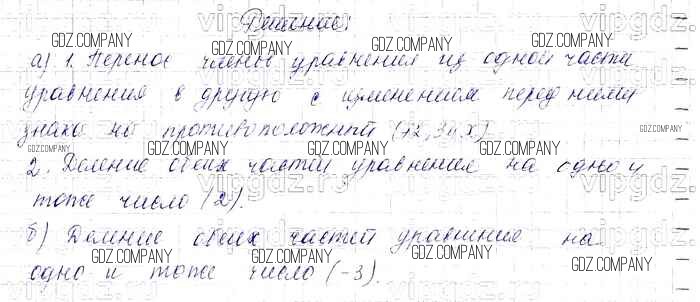 Решение:
а) 1. Перенос члены уравнения из одной части
уравнения в другую с изменением перед ними
знака на противоположный
2. Деление обеих частей уравнения на одно и
тоже число (2).
б) Деление обеих частей уравнения на
одно и тоже число (-3).
GDZ.COMPANY
vipgdz.ru